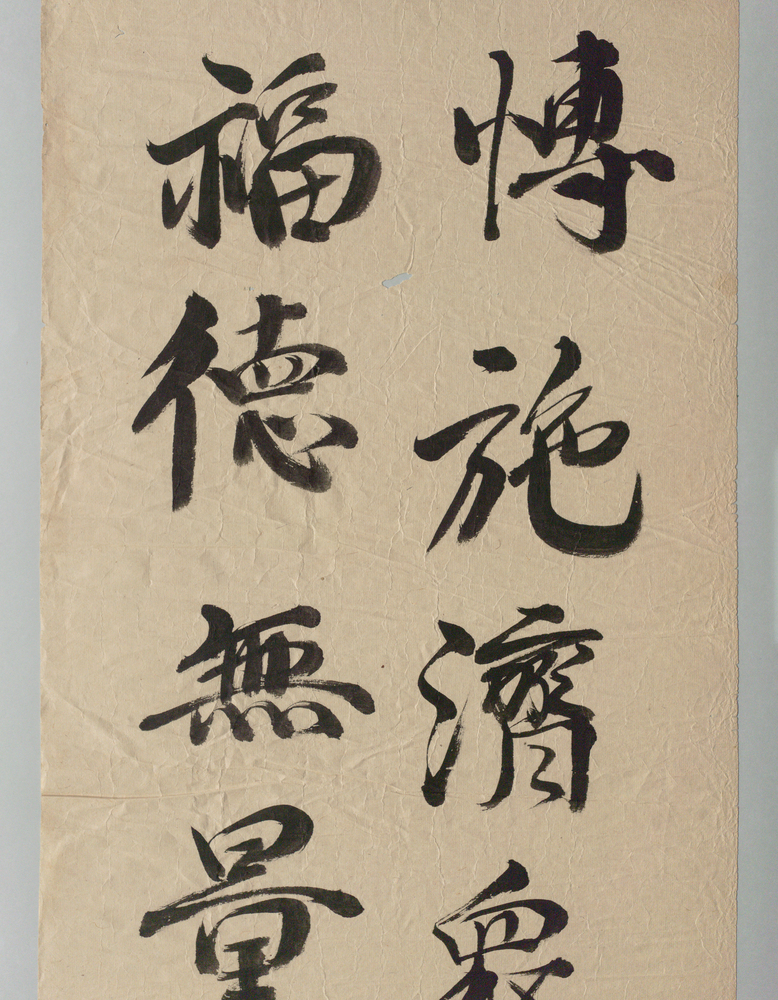 博施濟衆
福德無量